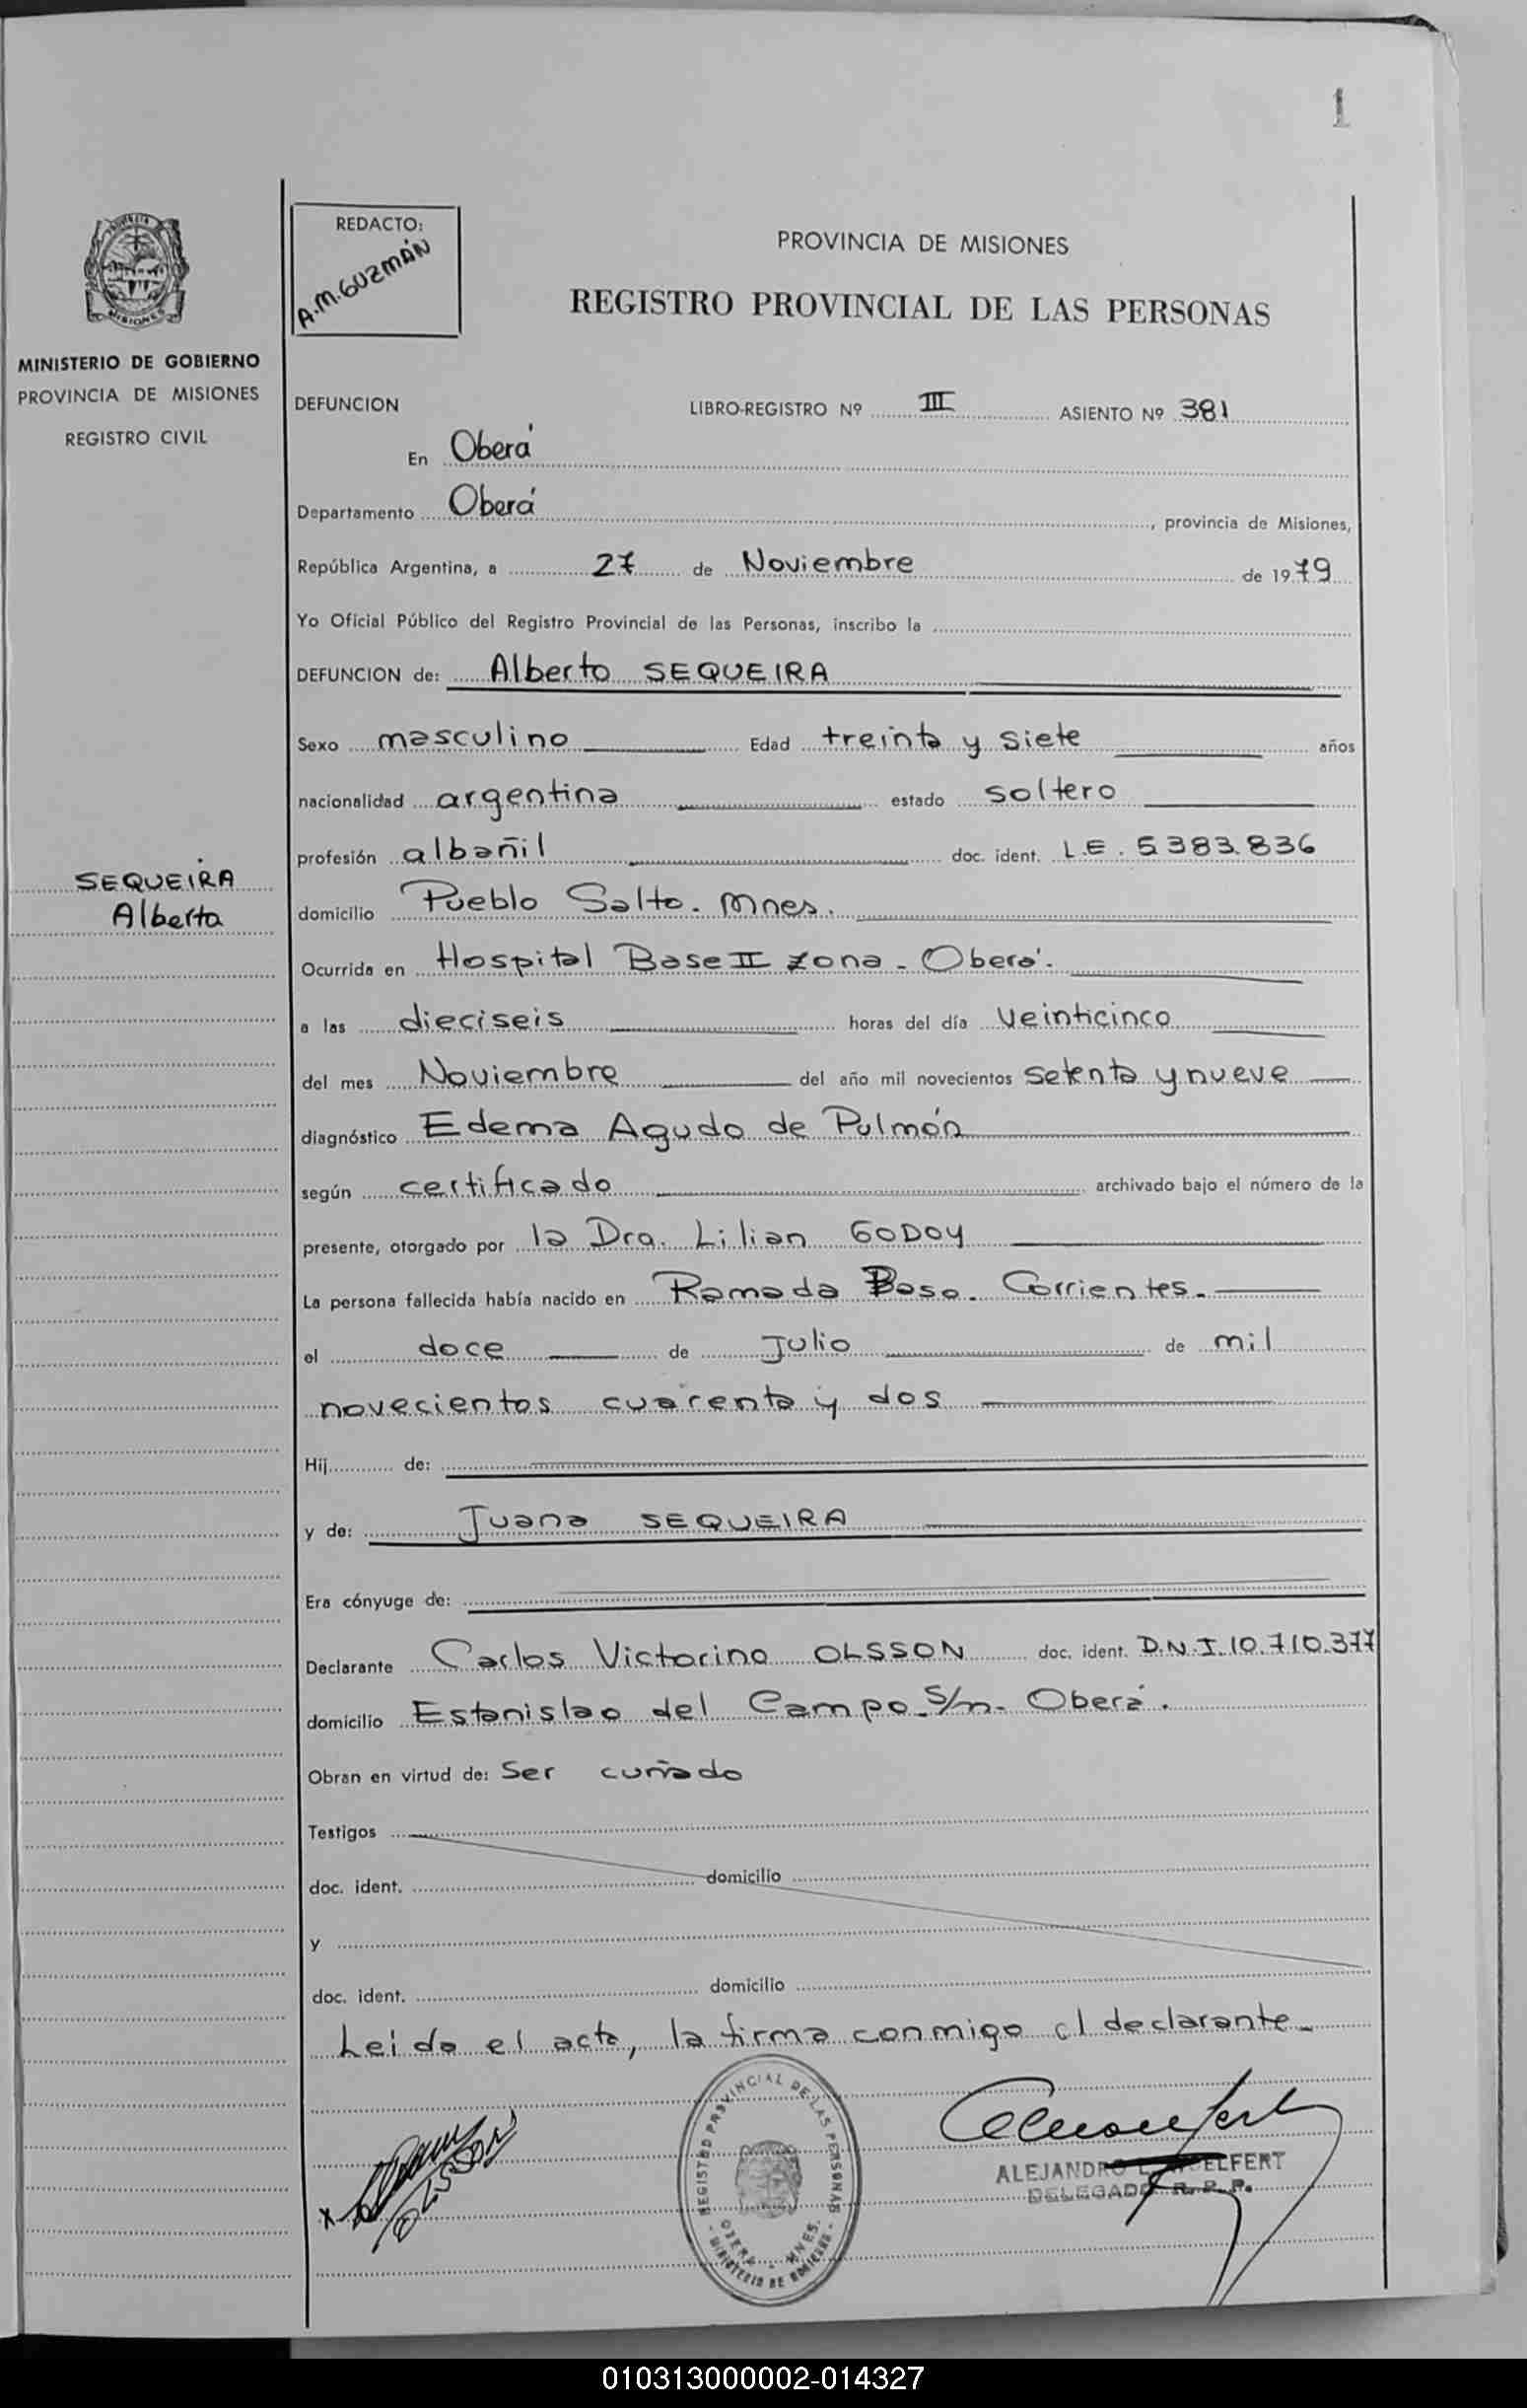 1
REDACTO:
A.M.GUZMÁN
PROVINCIA DE MISIONES
REGISTRO PROVINCIAL DE LAS PERSONAS
MISIONES
MINISTERIO DE GOBIERNO
PROVINCIA DE MISIONES
REGISTRO CIVIL
DEFUNCION LIBRO-REGISTRO Nº III ASIENTO Nº 381
En Oberá
Departamento Oberá, provincia de Misiones,
República Argentina, a 27 de Noviembre de 1979
Yo Oficial Público del Registro Provincial de las Personas, inscribo la
DEFUNCION de: Alberto SEQUEIRA
Sexo masculino Edad treinta y siete años
nacionalidad argentina estado soltero
profesión albañil doc. ident. L.E. 5.383.836
SEQUEIRA
Alberto
domicilio Pueblo Salto. Mnes.
Ocurrida en Hospital Base II Zona - Oberá.
a las dieciseis horas del día veinticinco
del mes Noviembre del año mil novecientos setenta y nueve
diagnóstico Edema Agudo de Pulmón
según certificado archivado bajo el número de la
presente, otorgado por la Dra. Lilian GODOY
La persona fallecida había nacido en Ramada Paso. Corrientes.
el doce de Julio de mil
novecientos cuarenta y dos
Hij de:
y de: Juana SEQUEIRA
Era cónyuge de:
Declarante Carlos Victorino OLSSON doc. ident. D.N.I. 10.710.377
domicilio Estanislao del Campo S/n- Oberá.
Obran en virtud de: Ser cuñado
Testigos
doc. ident. domicilio
y
doc. ident. domicilio
Leida el acta, la firma conmigo el declarante-
OLSSON
REGISTRO PROVINCIAL DE LAS PERSONAS
OBERA - MNES.
MINISTERIO DE GOBIERNO
ALEJANDRO
DELEGADO R. P. P.
010313000002-014327